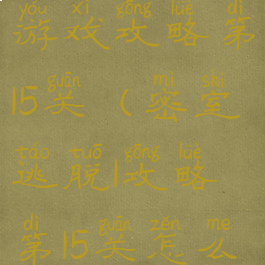 yóu xì gōng lüè dì
游戏攻略第
guān mì shì
15关(密室
táo tuō gōng lüè
逃脱|攻略
dì guān zěn me
第15关怎么